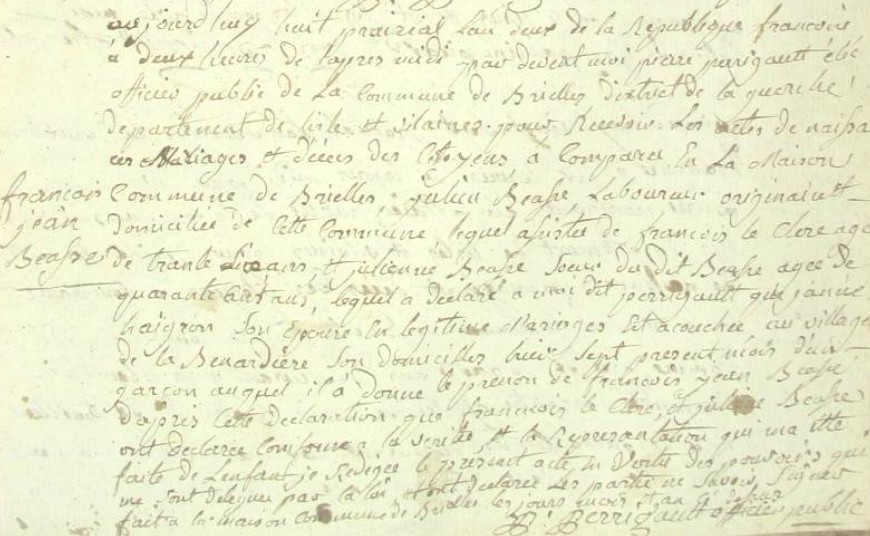 aujourd huy huit prairial L'an deux de la Republique francoise
à deux heures de lapres midi par devent moi pierre perrigault élié
officier public de La Commune de Brielles district de la guerche
departement de lisle et vilaines pour Recevoir Les actes de naissa
ces Mariages et déces des Citoyens a Comparu En La Maison
françois
jean
Beasse
Commune de Brielles, julien Beasse Laboureur originaire et
domiciliée de Cette Commune lequel asistée de francois le Clerc agé
de trante ans, et julienne Beasse Soeur du dit Beasse agée de
quarante ans lequel a declaré a moi dit perrigault que janne
haigron Son épouse En legitime Mariages Est acouchée au village
de la Benardière Son domicilles hier Sept present mois d'un
garçon auquel il à Donné le prenon de francois jean Beasse
d'apres Cette declaration que francois le Clerc et julienne Beasse
ont declarée Conforme a la verité et la Representation qui ma etté
faite de Lenfant je Redegée le présent acte En Vertu des pouvoirs qui
me sont delegué par la loi et ont declarée Les partie ne Savoir Signer
fait a la maison Commune de Brielles les jours mois et an
P. Perrigault officier public